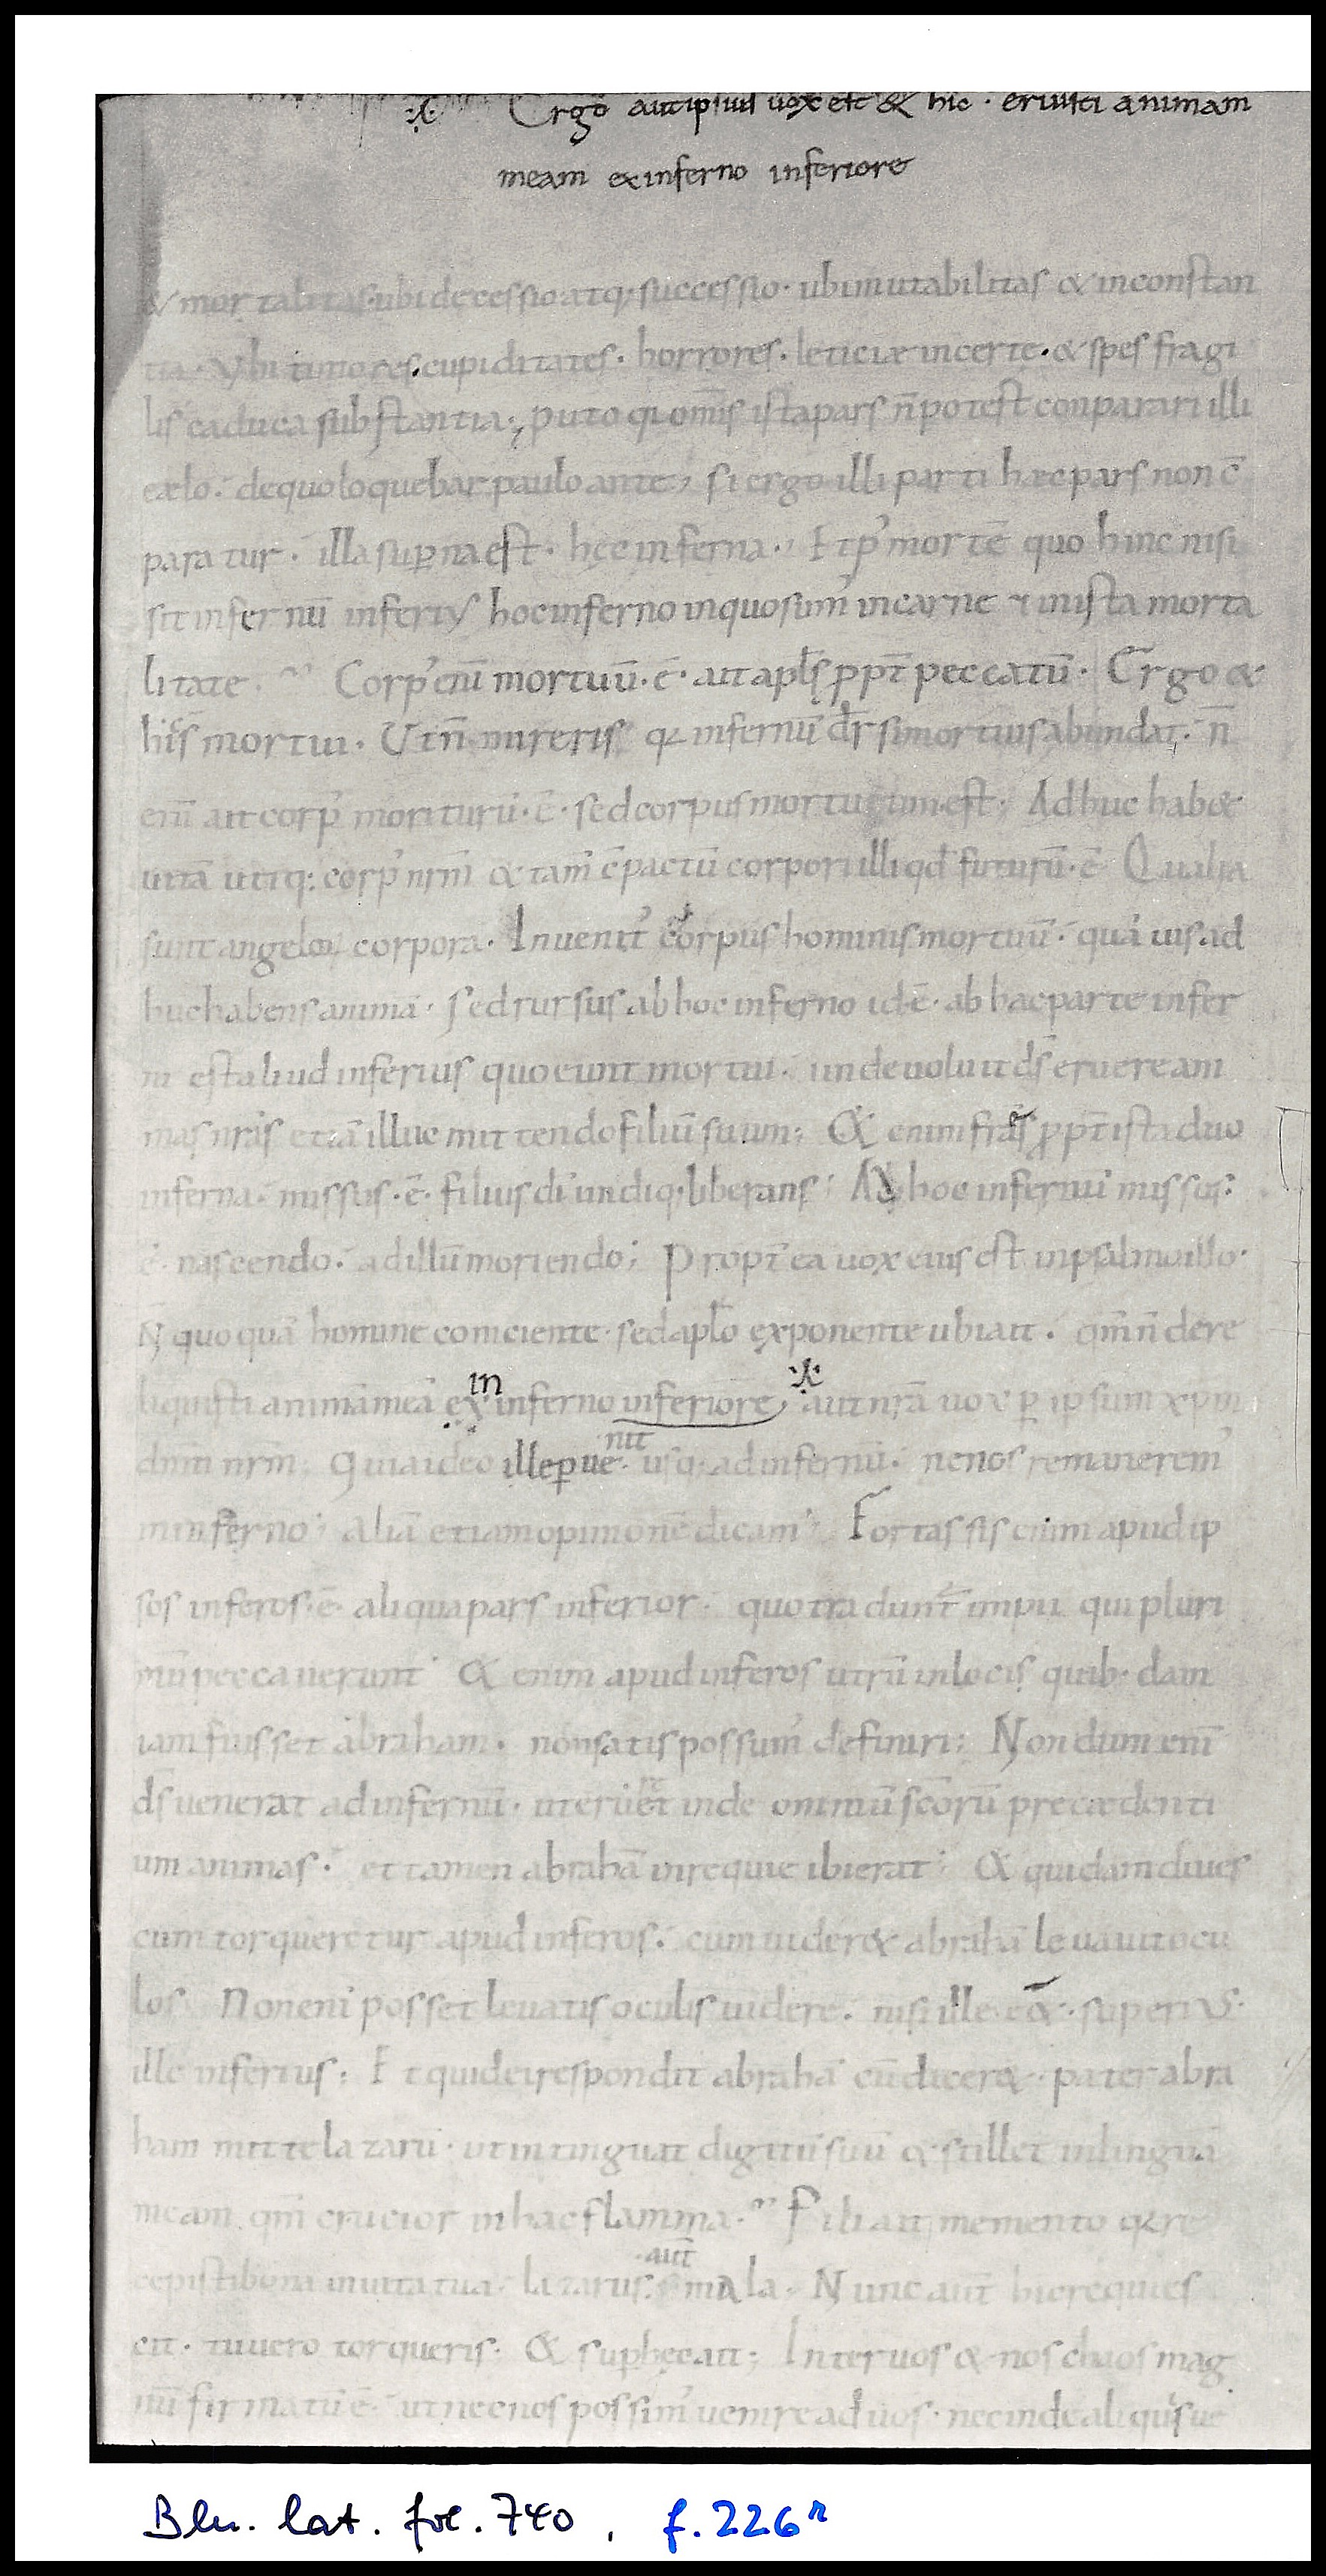 Ergo aut ipsius vox est & hic · eruisti animam
meam ex inferno inferiore
& mortalitas · ubi decessio atq; successio · ubi mutabilitas & inconstan
tia · Vbi timores. cupiditates · horrores · leticiæ incerte · & spes fragi
lis caduca substantia; puto qi om̅is ista pars n̅ potest conparari illi
cælo · de quo loquebar paulo ante; si ergo illi parti hæc pars non c̅
paratur · illa sup̱na est · hęc inferna · Et p' morte̅ quo hinc nisi
sit infernu̅ inferi' hoc inferno in quo sum' in carne & in ista morta
litate · Corp' eni̅ mortuu̅ · e̅ · ait apl̅s pp̅t peccatu̅ · Ergo &
hi̅s mortui · Ut n̅ mireris q; infernu̅ dr̅ si mortuis abundat · n̅
eni̅ ait corp' morituru̅ · e̅ · sed corpus mortuum est · Adhuc hab&
uita̅ utiq: corp' nr̅m & tam̅ c̅pactu̅ corpori illi qd̅ futuru̅ · e̅ Qualia
sunt angelorum corpora · Inuenit' corpus hominis mortuu̅ · qua̅uis ad
huc habens anima̅ · Sed rursus ab hoc inferno id · e̅ · ab hac parte infer
ni est aliud inferius quo eunt mortui · unde uoluit ds̅ eruere ani
mas nr̅as etia̅ illuc mittendo filiu̅ suum; & enim fr̅s pp̅t ista duo
inferna · missus · e̅ · filius di̅ undiq; liberans; Ad hoc infernu̅ missus
e̅ · nascendo · ad illu̅ moriendo; Propt̅ea uox eius est in psalmo illo ·
N̅ quoqua̅ homine coniciente · sed aplo̅ exponente ubi ait · qm̅ n̅ dere
in
liquisti anima̅ mea̅ ex inferno inferiore, aut nr̅a uox p̱ ipsum xp̅m
nit
dnm̅ nr̅m · Quia ideo ille p̱ue · usq; ad infernu̅ · ne nos remanerem'
in inferno; alia̅ etiam opinione̅ dicam; Fortassis enim apud ip
sos inferos · e̅ · aliqua pars inferior · quo tradunt̅ impii qui pluri
mu̅ peccauerunt · & enim apud inferos utru̅ in locis quib · dam
iam fuisset abraham · non satis possum' definiri; Nondum eni̅
ds̅ uenerat ad infernu̅ · ut erueret inde omniu̅ scoru̅ precædenti
um animas · et tamen abraha̅ in requie ibi erat; & quidam diues
cum torqueretur apud inferos · cum uider& abraha̅ leuauit ocu
los Non eni̅ posset leuatis oculis uidere · nisi ille e&̅ · superius ·
ille inferius; Et quid ei respondit abraha̅ cu̅ dicer& · pater abra
ham mitte lazaru̅ · ut intinguat digitu̅ suu̅ & stillet in lingua̅
meam qm̅ crucior in hac flamma · Fili ait memento q; re
aut̅
cepisti bona in uita tua · lazarus: mala · Nunc aut̅ hic requies
cit · tu uero torqueris; & sup̱ hęc ait; Inter uos & nos chaos mag
nu̅ firmatu̅ e̅ · ut nec nos possim' uenire ad uos · nec inde aliquis ue
Bln. lat. fol. 740, f. 226r